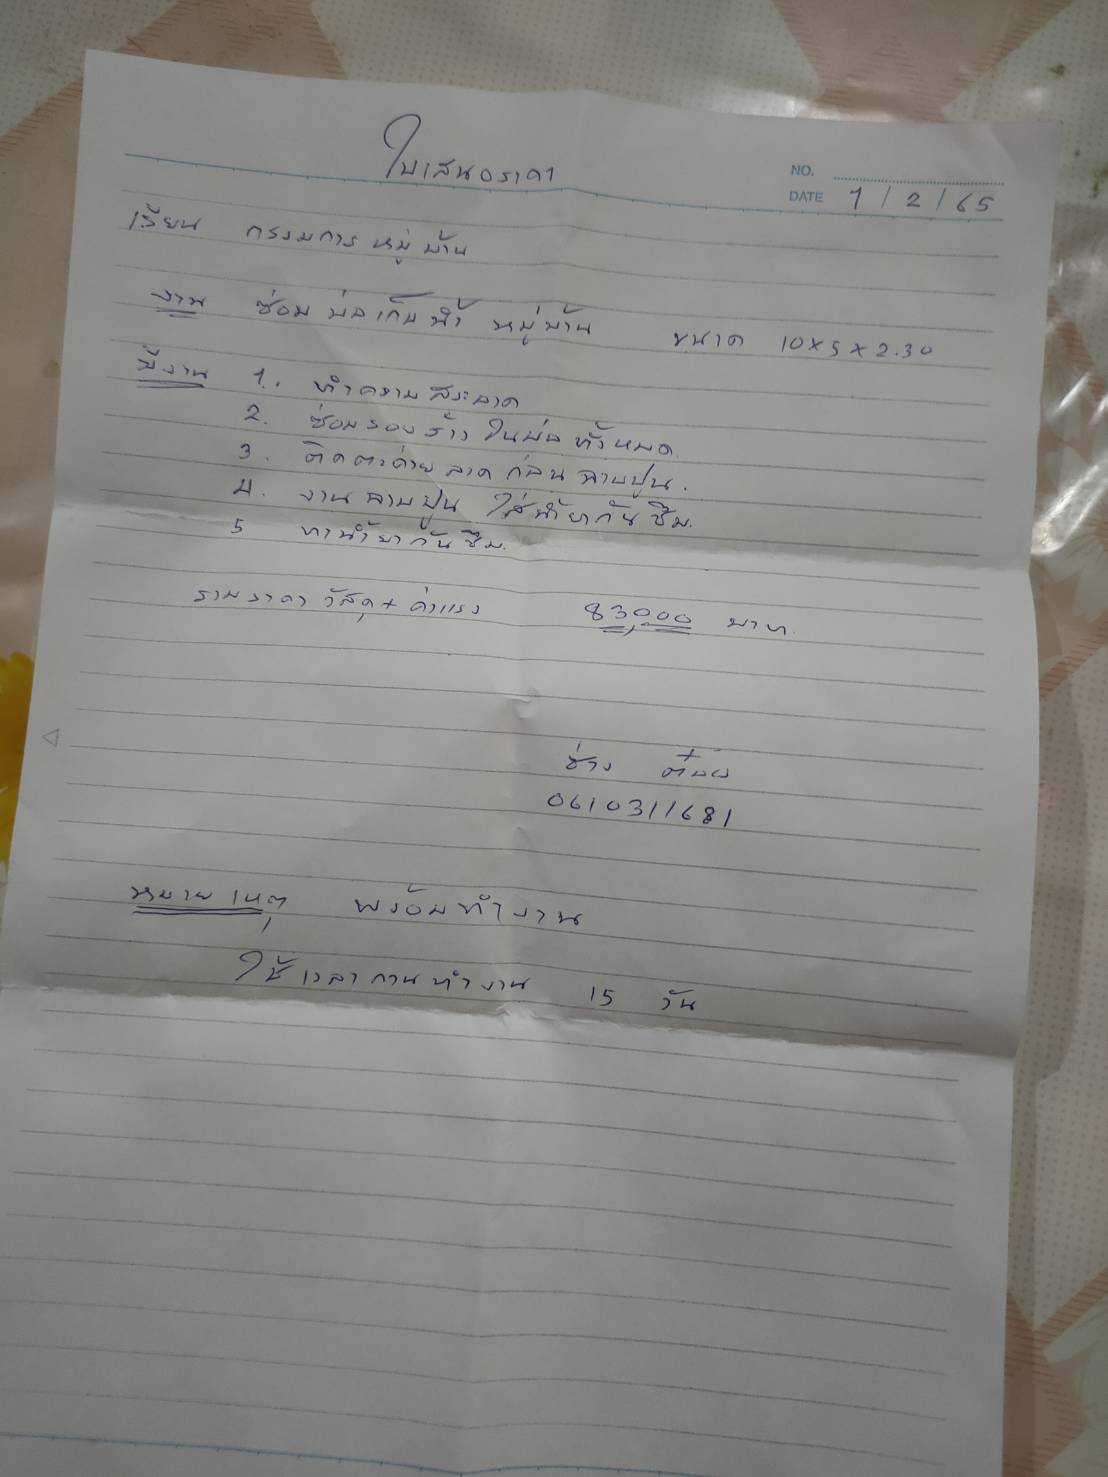 ใบเสนอราคา
NO.
DATE 1/2/65
เรียน กรรมการ หมู่บ้าน
งาน ซ่อม บ่อเก็บน้ำ หมู่บ้าน ขนาด 10x5x2.30
มีงาน 1. ทำความสะอาด
2. ซ่อมรอยร้าว ในบ่อ ทั้งหมด
3. ติดตาข่าย ลวด ก่อน ฉาบปูน.
4. งาน ฉาบปูน ใส่น้ำยากันซึม.
5 ทาน้ำยากันซึม.
รวมราคา วัสดุ + ค่าแรง 83,000 บาท.
ช่าง ต๋อย
0610311681
หมายเหตุ พร้อมทำงาน
ใช้เวลา การทำงาน 15 วัน